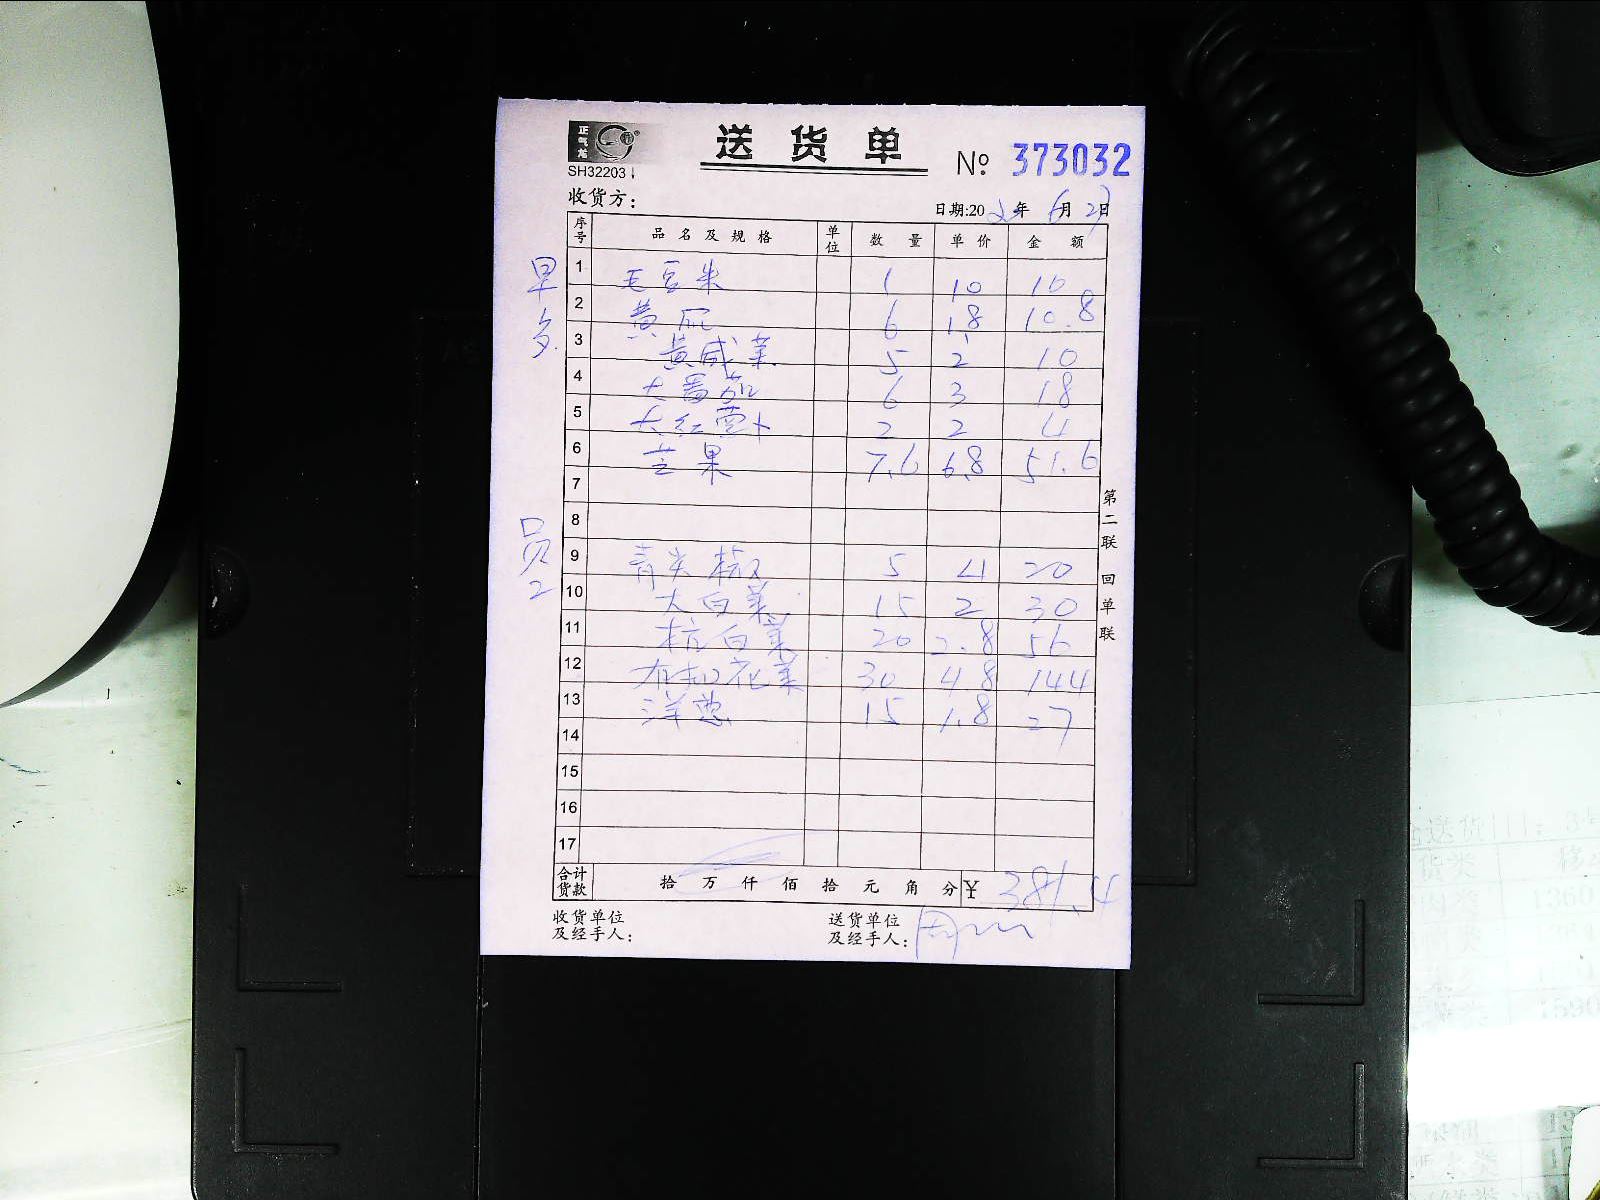 正气龙
SH32203
送货单
№ 373032
收货方：
日期:20 年 6月 日
序号 品名及规格 单位 数量 单价 金额
早
1 毛豆米 1 10 10
2 黄瓜 6 1.8 10.8
3 黄咸菜 5 2 10
4 大番茄 6 3 18
5 大红萝卜 2 2 4
6 芒果 7.6 6.8 51.6
7
8
员2
9 青尖椒 5 4 20
10 大白菜 15 2 30
11 杭白菜 20 2.8 56
12 有机花菜 30 4.8 144
13 洋葱 15 1.8 27
14
15
16
17
合计货款 拾 万 仟 佰 拾 元 角 分 ¥ 381.4
收货单位及经手人：
送货单位及经手人：
第二联 回单联